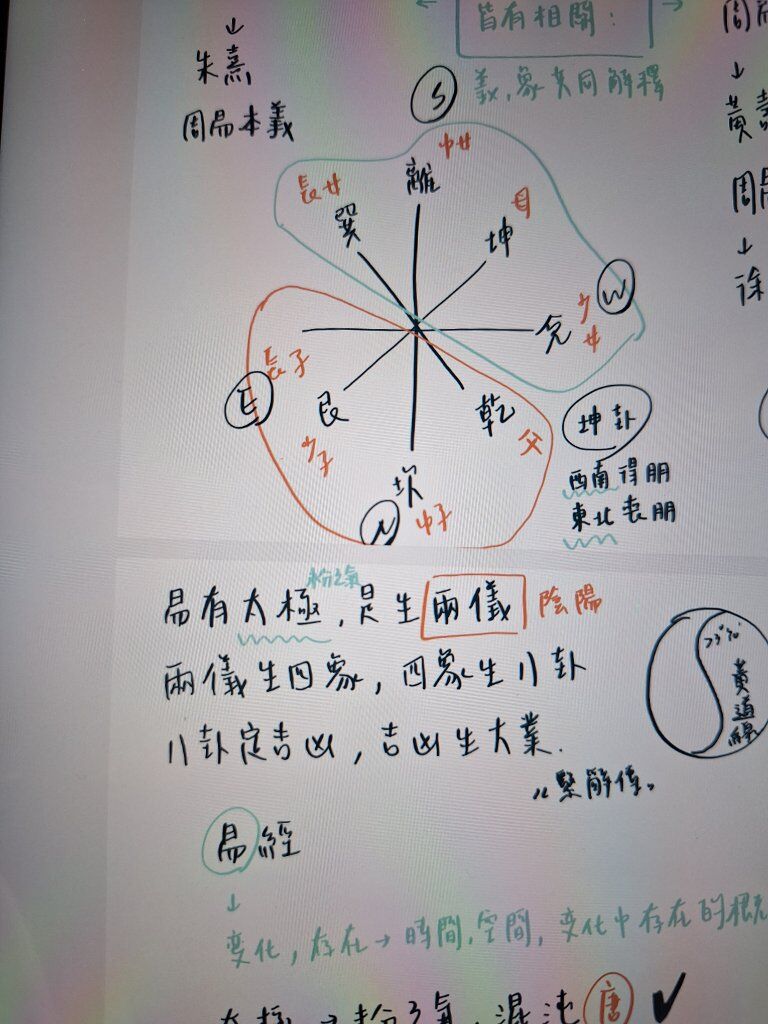 皆有相關：
↓
朱熹
周易本義
義,象共同解釋
↓
黃
周易
↓
徐
S
中女
離
長女
巽
母
坤
W
兌
少女
長子
E
艮
少子
乾
父
坎
中子
N
坤卦
西南得朋
東北喪朋
易有太極,是生兩儀 陰陽
兩儀生四象,四象生八卦
八卦定吉凶,吉凶生大業.
黃道線
易經
↓
变化,存在→時間,空間,变化中存在的概
唐 ✓